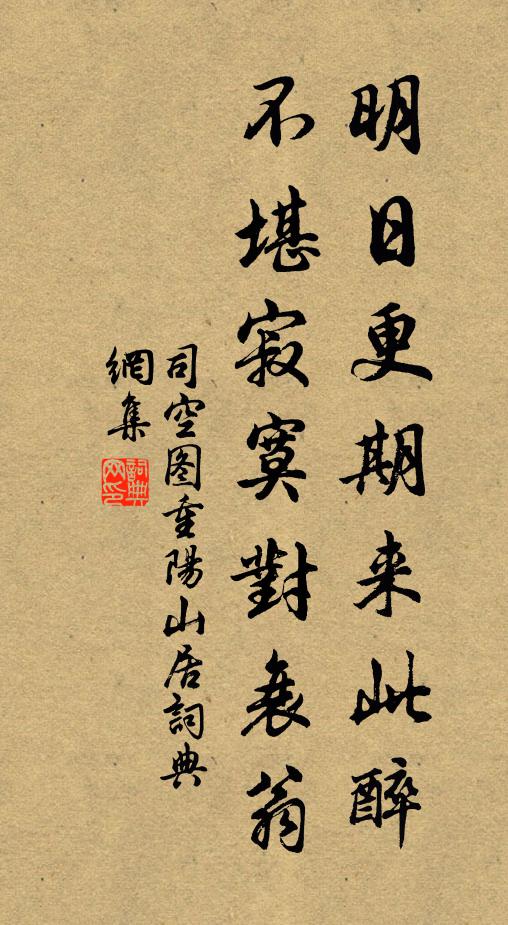 明日更期来此醉
不堪寂寞對衰翁
司空图重陽山居詞典
網集
詞典网印